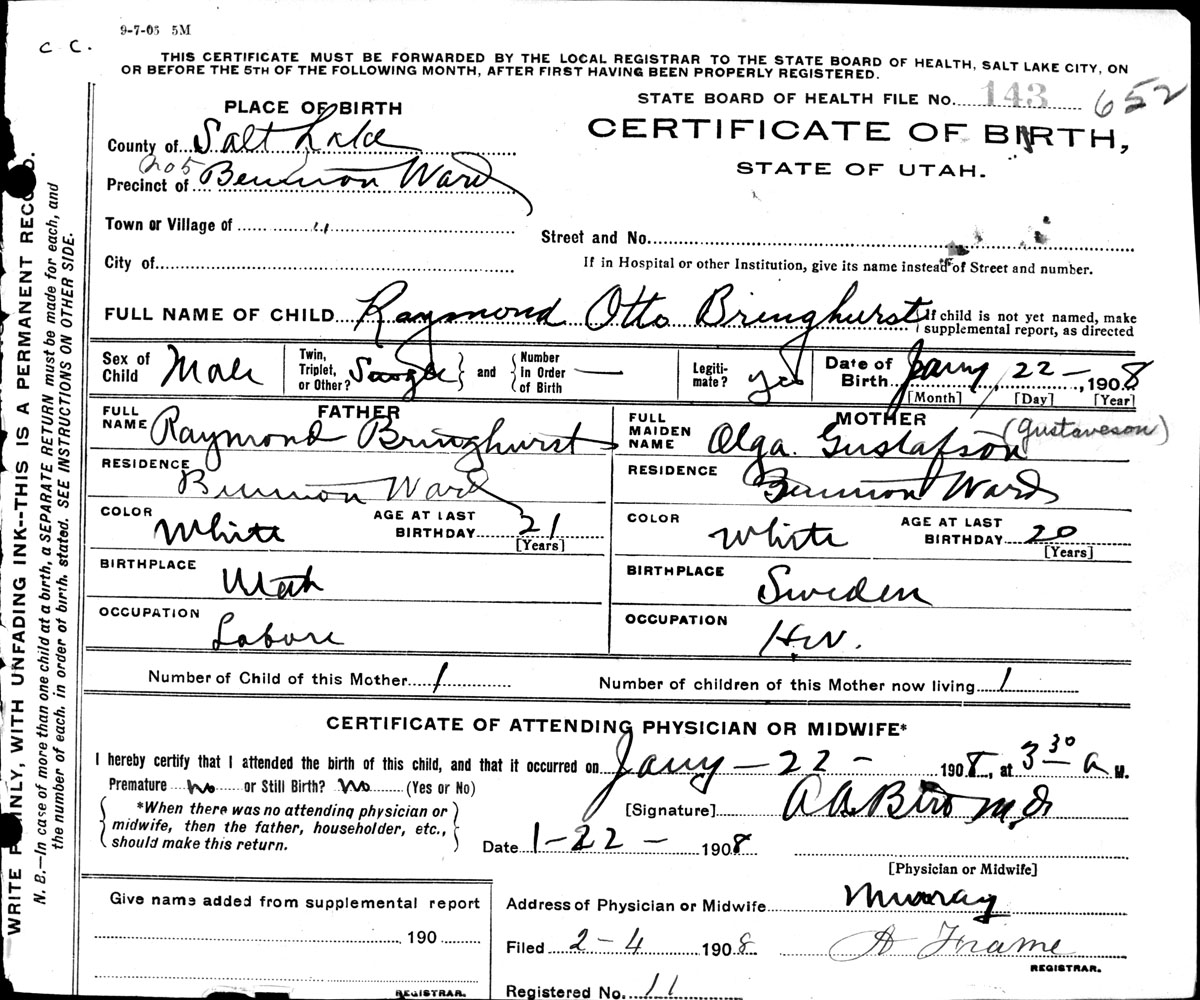 9-7-05 5M
C C.
THIS CERTIFICATE MUST BE FORWARDED BY THE LOCAL REGISTRAR TO THE STATE BOARD OF HEALTH, SALT LAKE CITY, ON
OR BEFORE THE 5TH OF THE FOLLOWING MONTH, AFTER FIRST HAVING BEEN PROPERLY REGISTERED.
WRITE PLAINLY, WITH UNFADING INK--THIS IS A PERMANENT RECORD.
N. B.—In case of more than one child at a birth, a SEPARATE RETURN must be made for each, and
the number of each, in order of birth, stated. SEE INSTRUCTIONS ON OTHER SIDE.
STATE BOARD OF HEALTH FILE No. 143 652
CERTIFICATE OF BIRTH,
STATE OF UTAH.
PLACE OF BIRTH
County of Salt Lake
205
Precinct of Bennion Ward
Town or Village of "
Street and No.
City of
If in Hospital or other Institution, give its name instead of Street and number.
FULL NAME OF CHILD Raymond Otto Bringhurst
If child is not yet named, make
supplemental report, as directed
Sex of Child Male
Twin, Triplet, or Other? Single and Number In Order of Birth —
Legiti-mate? yes
Date of Birth Jany 22 - , 1908
[Month] [Day] [Year]
FATHER
FULL NAME Raymond Bringhurst
RESIDENCE Bennion Ward
COLOR White AGE AT LAST BIRTHDAY 21 [Years]
BIRTHPLACE Utah
OCCUPATION Labore
MOTHER
FULL MAIDEN NAME Olga Gustafson (Gustaveson)
RESIDENCE Bennion Ward
COLOR White AGE AT LAST BIRTHDAY 20 [Years]
BIRTHPLACE Sweden
OCCUPATION H.W.
Number of Child of this Mother 1 Number of children of this Mother now living 1
CERTIFICATE OF ATTENDING PHYSICIAN OR MIDWIFE*
I hereby certify that I attended the birth of this child, and that it occurred on Jany - 22 - 1908, at 3 30 a M.
Premature no or Still Birth? No (Yes or No)
*When there was no attending physician or
midwife, then the father, householder, etc.,
should make this return.
[Signature] M.D.
Date 1-22 - 1908
[Physician or Midwife]
Give name added from supplemental report
190
REGISTRAR.
Address of Physician or Midwife Murray
Filed 2-4 1908 A Frame
REGISTRAR.
Registered No. 11